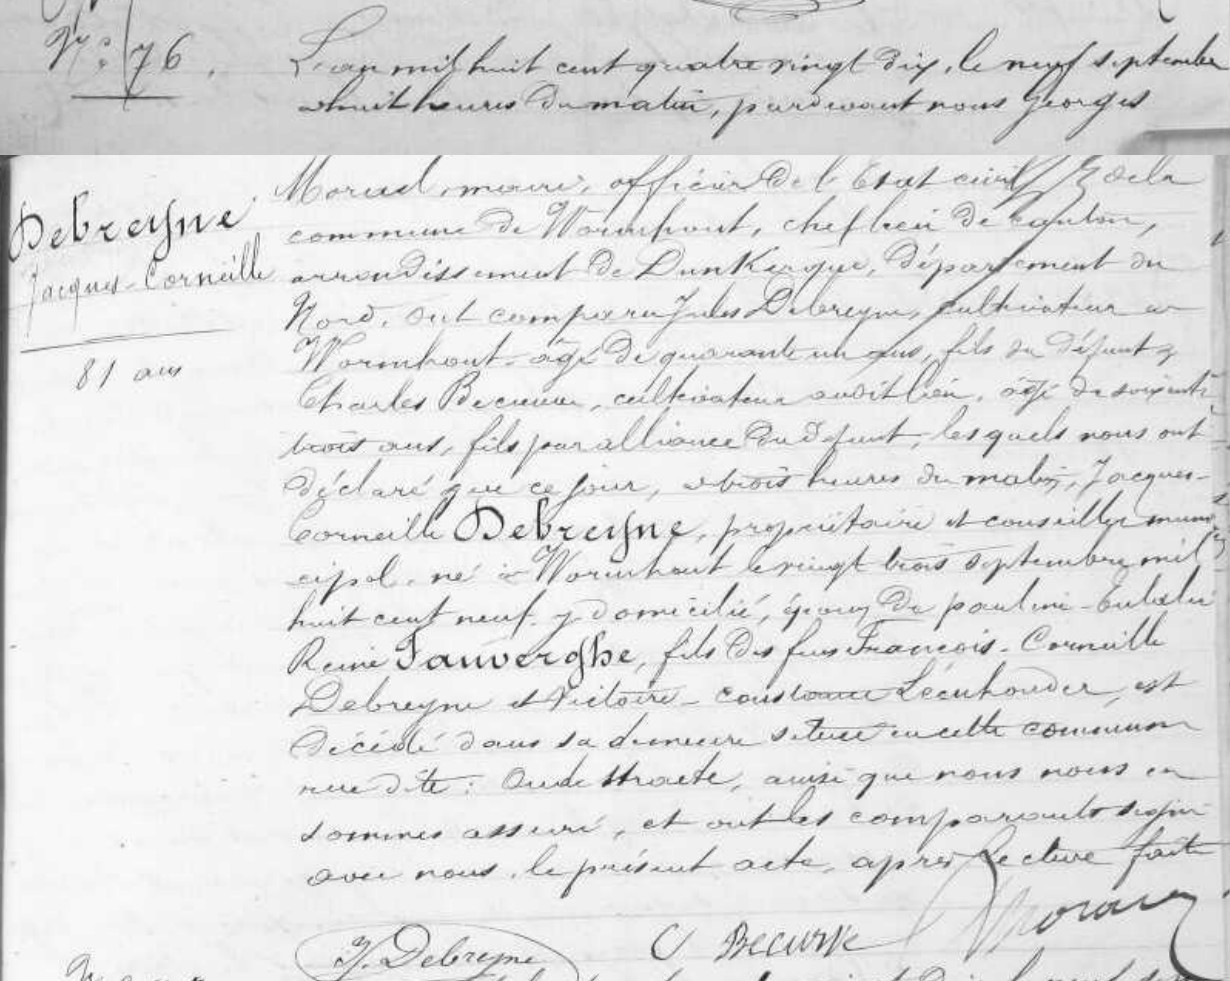 N° 76.
L'an mil huit cent quatre vingt dix, le neuf septembre
à huit heures du matin, pardevant nous Georges
Debreyne
Jacques-Corneille
81 ans
maire, officier de l'Etat civil de la
commune de Wormhout, chef lieu de canton,
arrondissement de Dunkerque, département du
Nord, ont comparu Jules Debreyne, cultivateur à
Wormhout, âgé de quarante un ans, fils du défunt &
Charles Becuwe, cultivateur audit lieu, âgé de soixante
trois ans, fils par alliance du défunt, lesquels nous ont
déclaré que ce jour, à trois heures du matin, Jacques-
Corneille Debreyne, propriétaire et conseiller muni
cipal, né à Wormhout le vingt trois septembre mil
huit cent neuf, y domicilié, époux de pauline-Eulalie
Reine Fauverghe, fils des feus François-Corneille
Debreyne et Victoire-constance est
décédé dans sa demeure située en cette commune
rue dite: Oude straete, ainsi que nous nous en
sommes assuré, et ont les comparants signé
avec nous, le présent acte, après lecture faite
J. Debreyne
C Becuwe